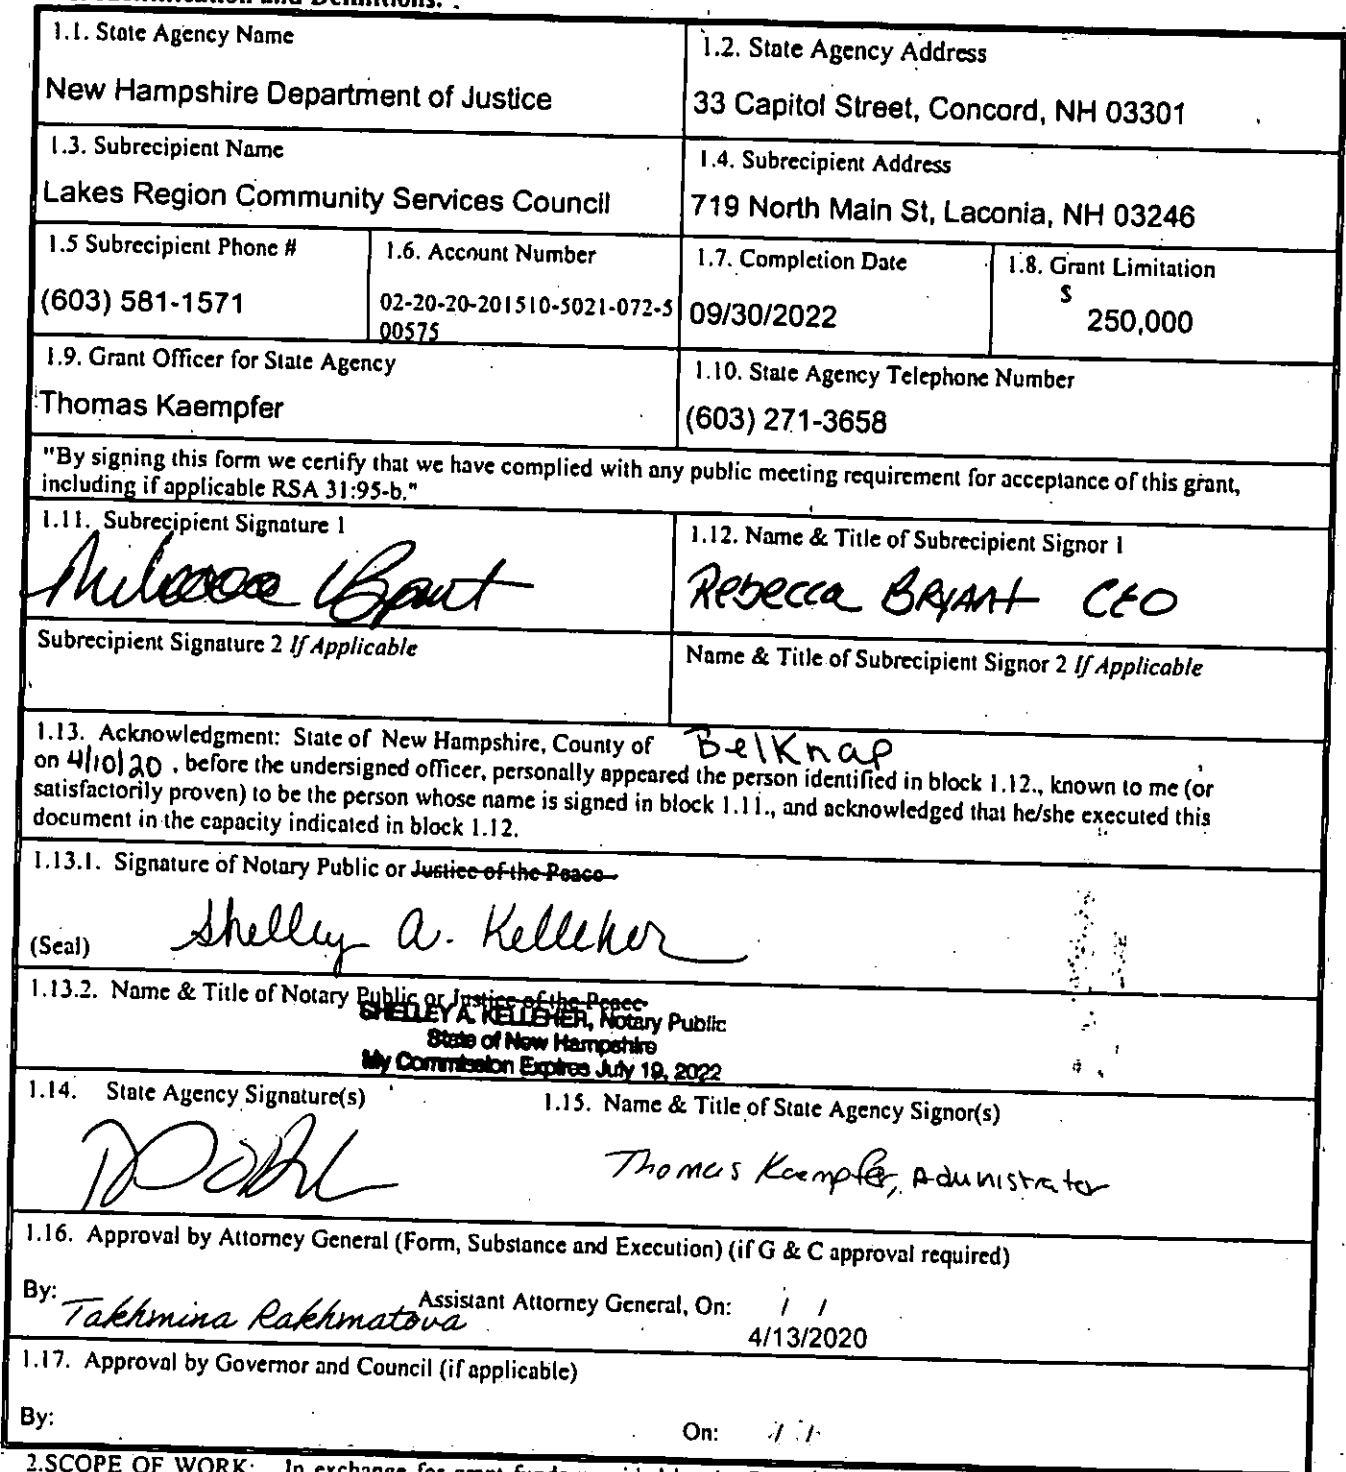 and Definitions.
1.1. State Agency Name
New Hampshire Department of Justice
1.2. State Agency Address
33 Capitol Street, Concord, NH 03301
1.3. Subrecipient Name
Lakes Region Community Services Council
1.4. Subrecipient Address
719 North Main St, Laconia, NH 03246
1.5 Subrecipient Phone #
(603) 581-1571
1.6. Account Number
02-20-20-201510-5021-072-5
00575
1.7. Completion Date
09/30/2022
1.8. Grant Limitation
$
250,000
1.9. Grant Officer for State Agency
Thomas Kaempfer
1.10. State Agency Telephone Number
(603) 271-3658
"By signing this form we certify that we have complied with any public meeting requirement for acceptance of this grant,
including if applicable RSA 31:95-b."
1.11. Subrecipient Signature 1
1.12. Name & Title of Subrecipient Signor 1
Rebecca Bryant CEO
Subrecipient Signature 2 If Applicable
Name & Title of Subrecipient Signor 2 If Applicable
1.13. Acknowledgment: State of New Hampshire, County of Belknap
on 4/10/20 , before the undersigned officer, personally appeared the person identified in block 1.12., known to me (or
satisfactorily proven) to be the person whose name is signed in block 1.11., and acknowledged that he/she executed this
document in the capacity indicated in block 1.12.
1.13.1. Signature of Notary Public or Justice of the Peace
Shelley A. Kelleher
(Seal)
1.13.2. Name & Title of Notary Public or Justice of the Peace
SHELLEY A. KELLEHER, Notary Public
State of New Hampshire
My Commission Expires July 19, 2022
1.14. State Agency Signature(s)
1.15. Name & Title of State Agency Signor(s)
Thomas Kaempfer, Administrator
1.16. Approval by Attorney General (Form, Substance and Execution) (if G & C approval required)
By: Takhmina Rakhmatova Assistant Attorney General, On: / /
4/13/2020
1.17. Approval by Governor and Council (if applicable)
By: On: / /
2.SCOPE OF WORK: In exchange for grant funds